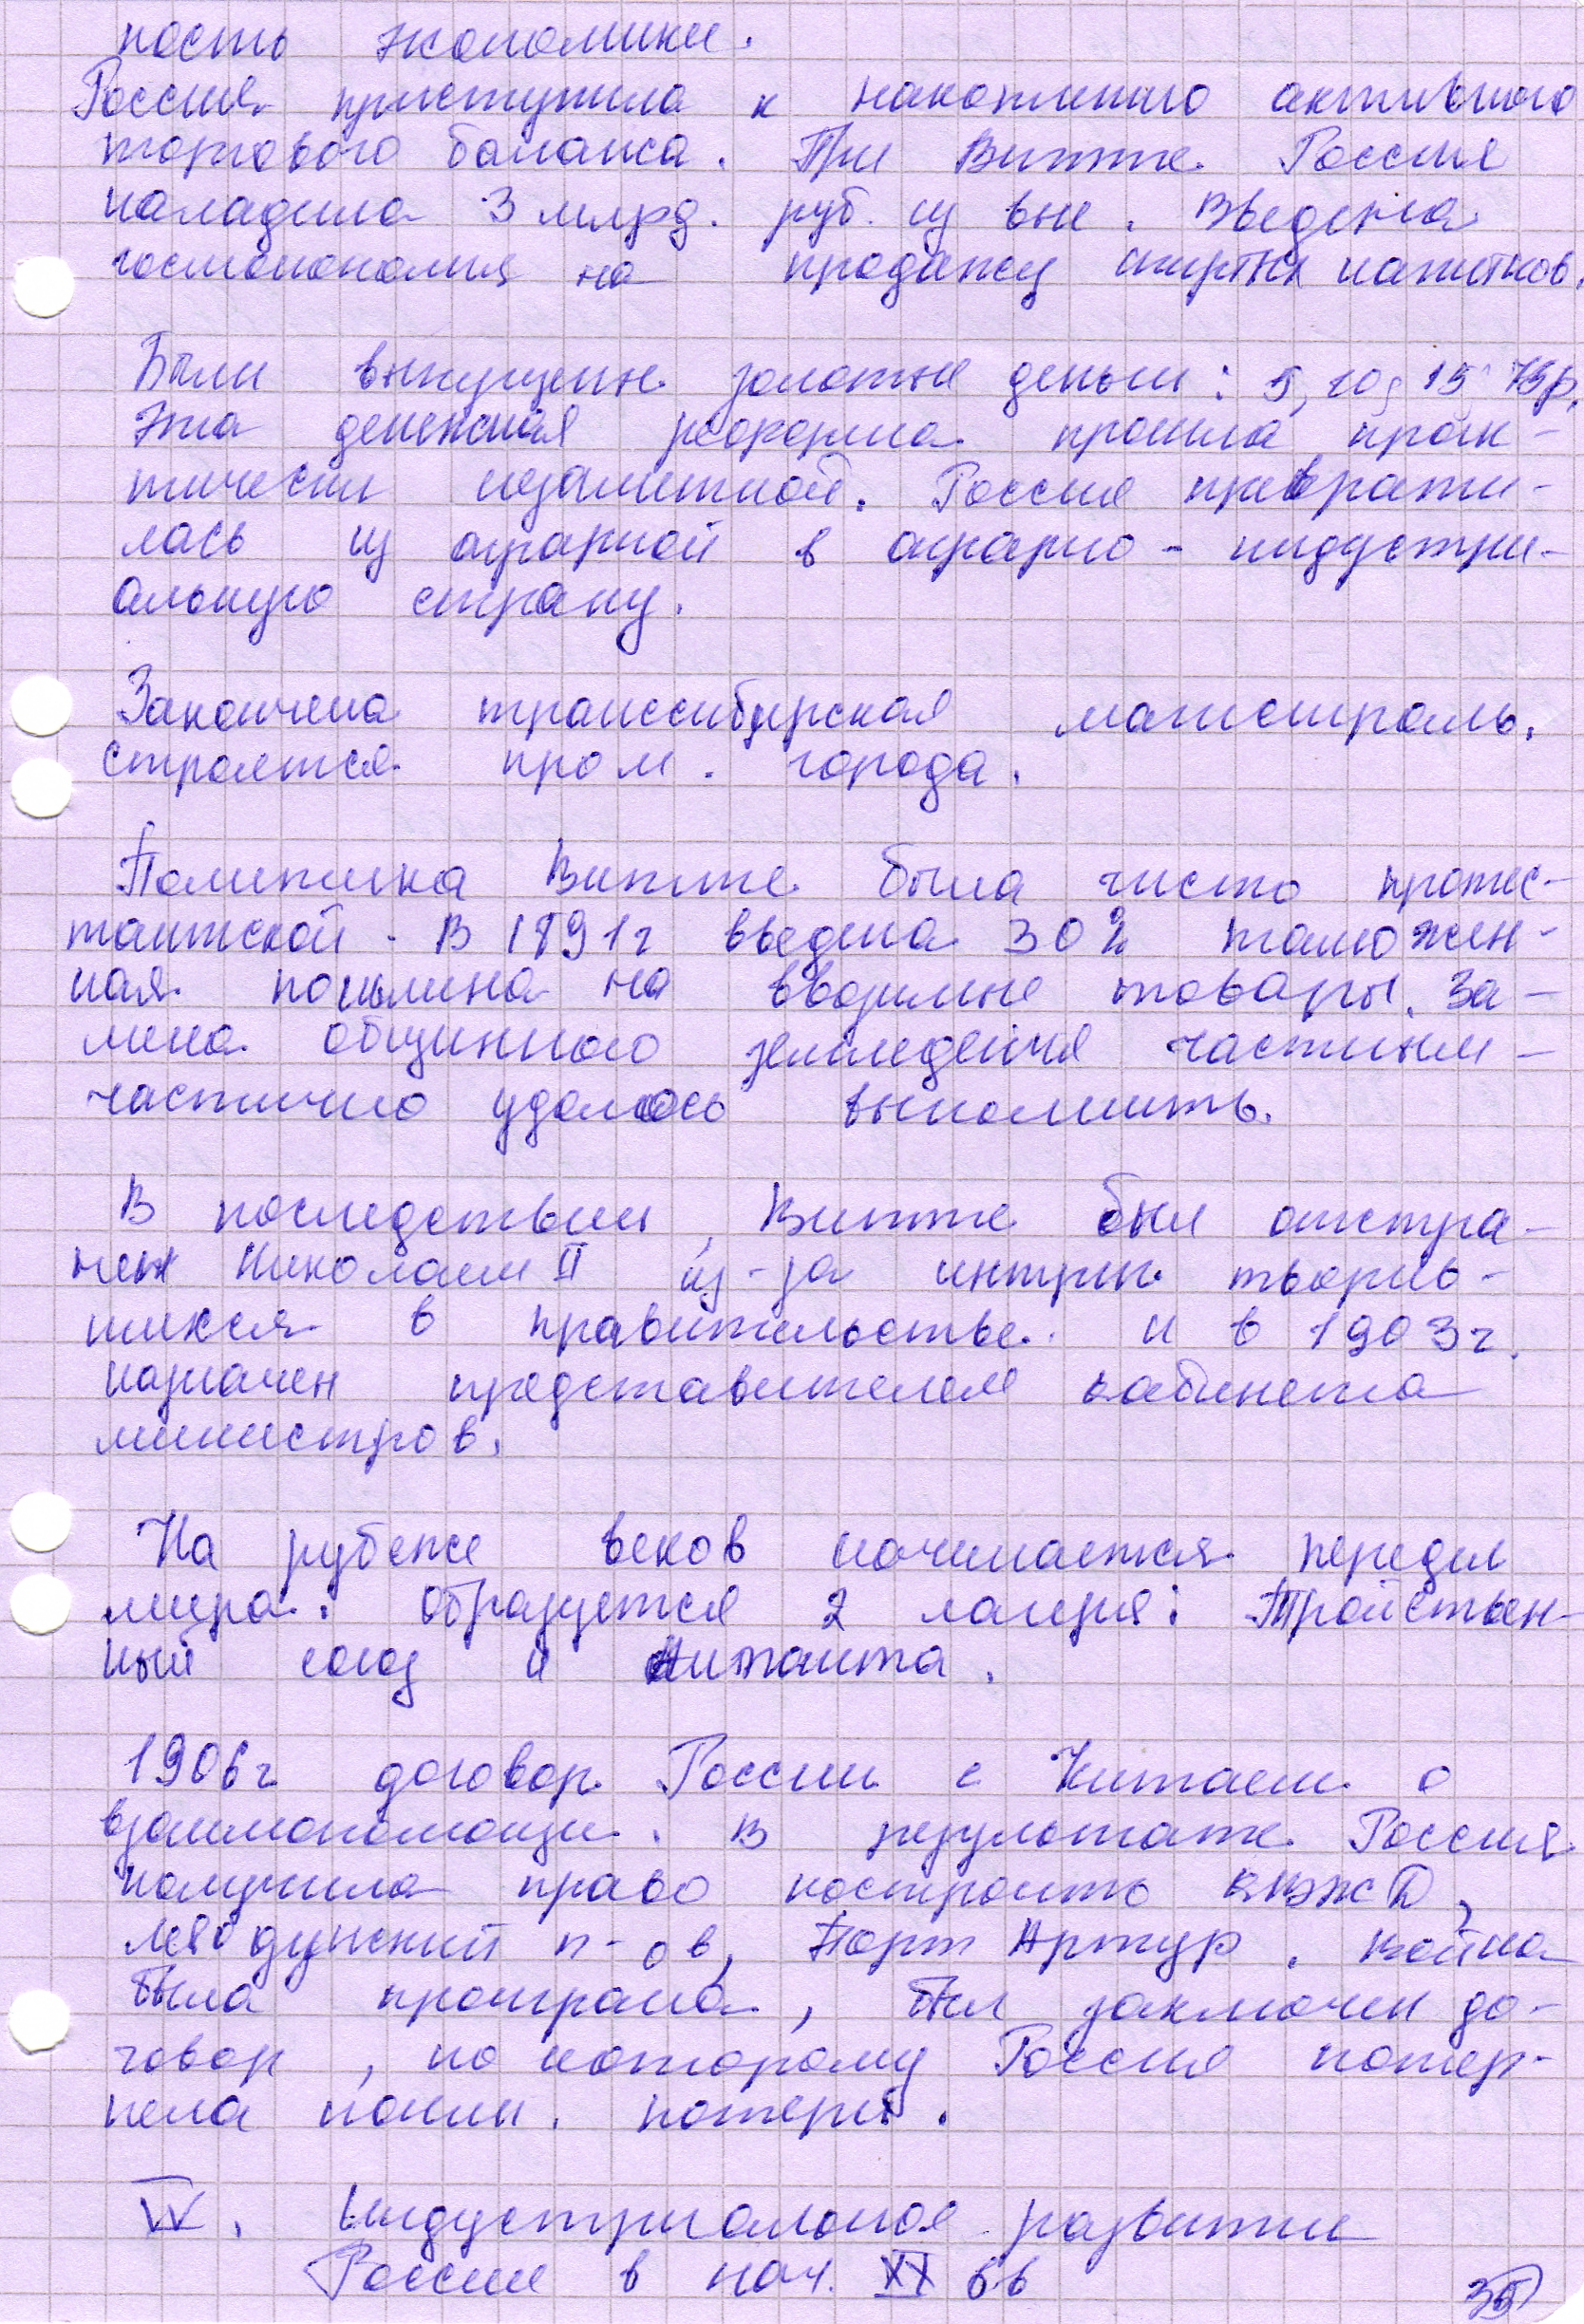 ность экономики.
Россия приступила к накоплению активного
торгового баланса. При Витте Россия
наладила 3 млрд. руб. из вне. Введена
госмонополия на продажу спиртных напитков.
Были выпущены золотые деньги: 5, 10, 15
Эта денежная реформа прошла прак-
тически незаметной. Россия преврати-
лась из аграрной в аграрно-индустри-
альную страну.
Закончена транссибирская магистраль.
строятся пром. города.
Политика Витте была чисто протес-
тантской. В 1891г введена 30% таможен-
ная пошлина на ввозимые товары. За-
мена общинного земледелия частным -
частично удалось выполнить.
В последствии, Витте был отстра-
нен Николаем II из-за интриг творив-
шихся в правительстве. и в 1903г.
назначен представителем кабинета
министров.
На рубеже веков начинается передел
мира. Образуется 2 лагеря: Тройствен-
ный союз и Антанта.
1906г договор России с Китаем о
взаимопомощи. В результате Россия
получила право построить КВЖД,
Леодунский п-ов, Порт Артур. Война
была проиграна, был заключен до-
говор, по которому Россия потер-
пела потери.
IV. Индустриальное развитие
России в нач. XX вв
35